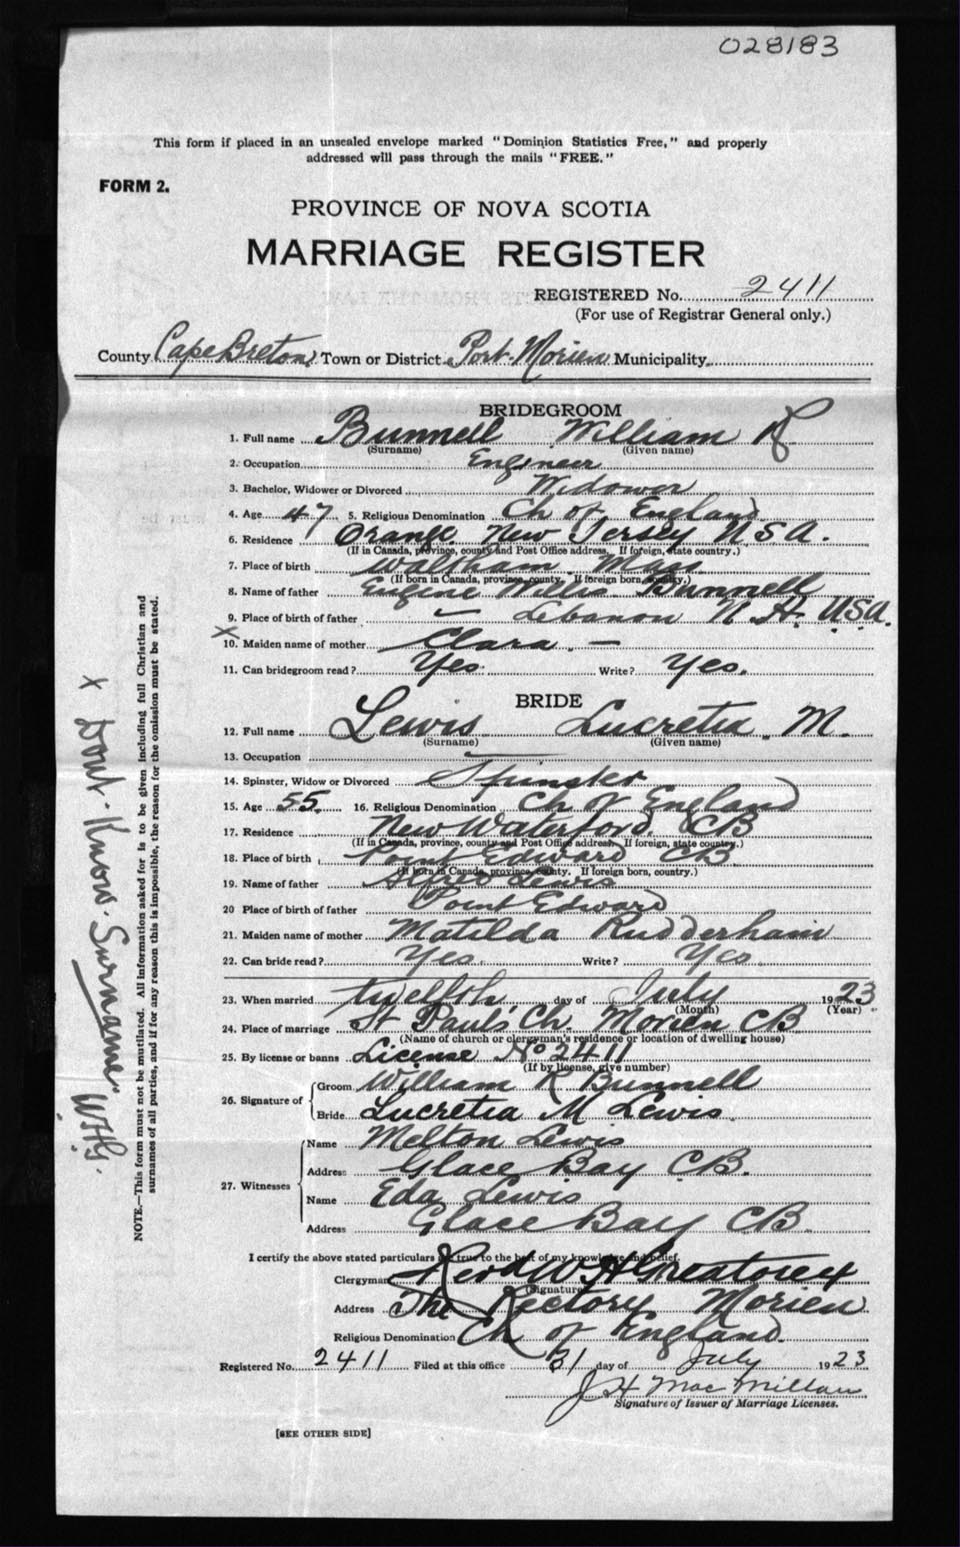 028183
This form if placed in an unsealed envelope marked "Dominion Statistics Free," and properly
addressed will pass through the mails "FREE."
FORM 2.
PROVINCE OF NOVA SCOTIA
MARRIAGE REGISTER
REGISTERED No. 2411
(For use of Registrar General only.)
County Cape Breton Town or District Port Morien Municipality
BRIDEGROOM
1. Full name Bunnell William R
(Surname) (Given name)
2. Occupation Engineer
3. Bachelor, Widower or Divorced Widower
4. Age 47 5. Religious Denomination Ch of England
6. Residence Orange New Jersey U S A.
(If in Canada, province, county and Post Office address. If foreign, state country.)
7. Place of birth Waltham Mass
(If born in Canada, province, county. If foreign born, country.)
8. Name of father Eugene Willis Bunnell
9. Place of birth of father — Lebanon N. H. USA.
X
10. Maiden name of mother Clara —
11. Can bridegroom read? Yes. Write? Yes.
BRIDE
12. Full name Lewis Lucretia M.
(Surname) (Given name)
13. Occupation —
14. Spinster, Widow or Divorced Spinster
15. Age 55. 16. Religious Denomination Ch of England
17. Residence New Waterford CB
(If in Canada, province, county and Post Office address. If foreign, state country.)
18. Place of birth Point Edward CB
(If born in Canada, province, county. If foreign born, country.)
19. Name of father Alfred Lewis
20 Place of birth of father Point Edward
21. Maiden name of mother Matilda Rudderham
22. Can bride read? Yes Write? Yes
23. When married twelfth day of July 1923
(Month) (Year)
24. Place of marriage St Paul's Ch. Morien CB
(Name of church or clergyman's residence or location of dwelling house)
25. By license or banns License No 2411
(If by license, give number)
26. Signature of Groom William R Bunnell
Bride Lucretia M Lewis
27. Witnesses Name Melton Lewis
Address Glace Bay CB.
Name Eda Lewis
Address Glace Bay CB
I certify the above stated particulars are true to the best of my knowledge and belief.
Clergyman Revd W H Greatorex
(Signature)
Address The Rectory Morien
Religious Denomination Ch of England.
Registered No. 2411 Filed at this office 31 day of July 1923
J H MacMillan
Signature of Issuer of Marriage Licenses.
[SEE OTHER SIDE]
NOTE.—This form must not be mutilated. All information asked for is to be given including full Christian and
surnames of all parties, and if for any reason this is impossible, the reason for the omission must be stated.
X Dont Know Surname W.H.G.